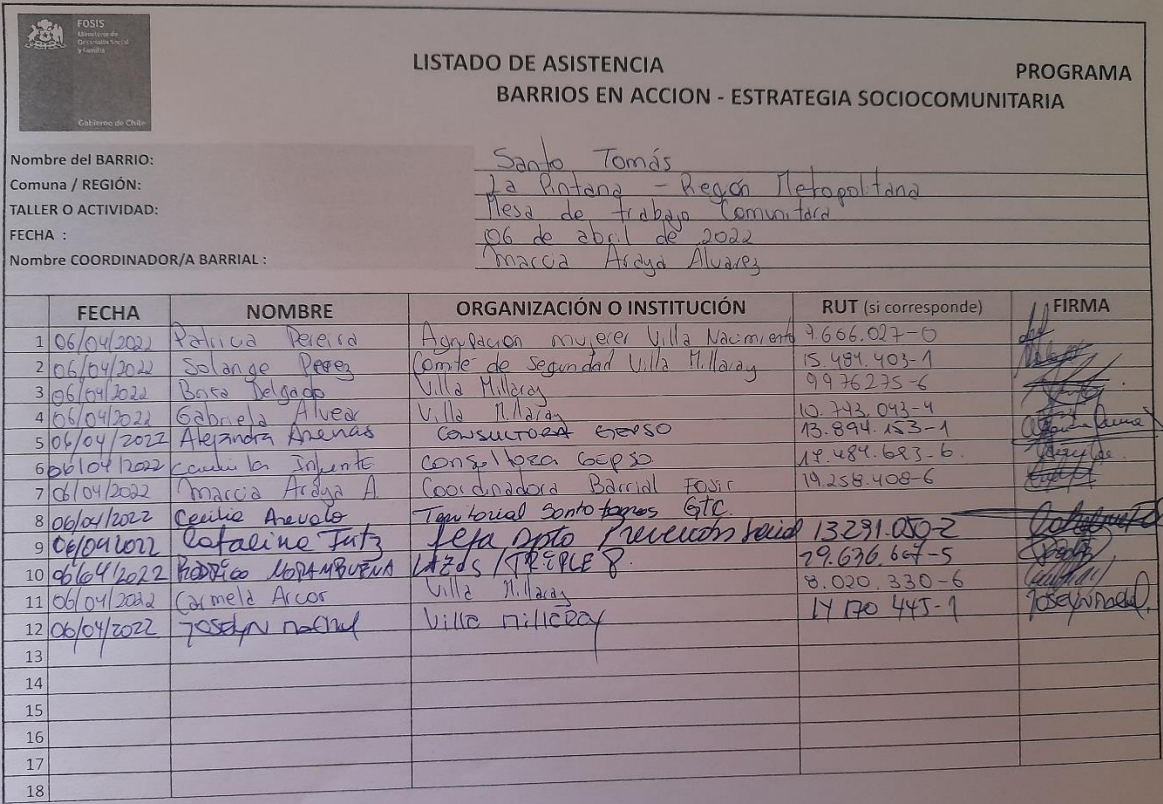 FOSIS
Ministerio de
Desarrollo Social
y Familia
Gobierno de Chile
LISTADO DE ASISTENCIA PROGRAMA
BARRIOS EN ACCION - ESTRATEGIA SOCIOCOMUNITARIA
Nombre del BARRIO: Santo Tomás
Comuna / REGIÓN: La Pintana - Región Metropolitana
TALLER O ACTIVIDAD: Mesa de trabajo Comunitaria
FECHA : 06 de abril de 2022
Nombre COORDINADOR/A BARRIAL : Marcia Araya Alvarez
FECHA NOMBRE ORGANIZACIÓN O INSTITUCIÓN RUT (si corresponde) FIRMA
1 06/04/2022 Patricia Pereira Agrupación mujeres Villa Nacimiento 7.666.027-0
2 06/04/2022 Solange Perez Comité de Seguridad Villa Millaray 15.484.403-1
3 06/04/2022 Delgado Villa Millaray 9976275-6
4 06/04/2022 Gabriela Alvear Villa Millaray 10.743.043-4
5 06/04/2022 Alejandra Arenas CONSULTORA GEPSO 13.894.153-1
6 06/04/2022 Camila Consultora GEPSO 17.484.693-6.
7 06/04/2022 Marcia Araya A. Coordinadora Barrial Fosis 19.258.408-6
8 06/04/2022 Cecilia Arevalo Territorial Santo tomas GTC.
9 06/04/2022 Catalina Jefa Dpto Prevención Social 13291.050-2
10 06/04/2022 RODRIGO NORAMBUENA LAZOS / TRIPLE P. 29.636.667-5
11 06/04/2022 Carmela Arcos Villa Millaray 8.020.330-6
12 06/04/2022 JOSELYN Villa millaray 17170445-1 JOSELYN
13
14
15
16
17
18